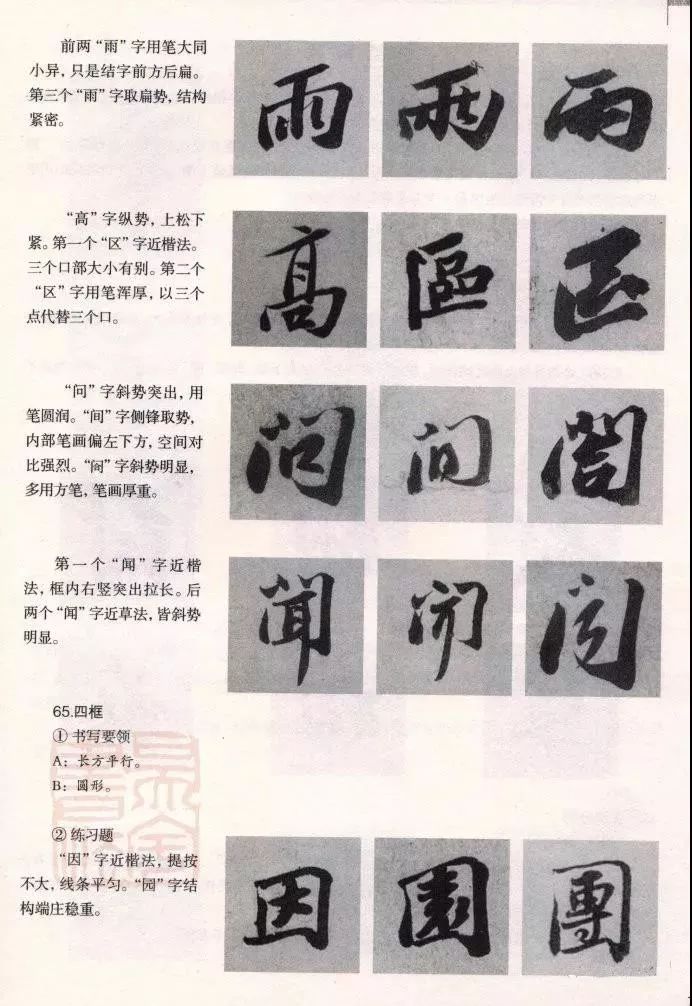 前两“雨”字用笔大同
小异，只是结字前方后扁。
第三个“雨”字取扁势，结构
紧密。
雨 雨 雨
“高”字纵势，上松下
紧。第一个“区”字近楷法。
三个口部大小有别。第二个
“区”字用笔浑厚，以三个
点代替三个口。
高 區 区
“问”字斜势突出，用
笔圆润。“间”字侧锋取势，
内部笔画偏左下方，空间对
比强烈。“阁”字斜势明显，
多用方笔，笔画厚重。
问 间
第一个“闻”字近楷
法，框内右竖突出拉长。后
两个“闻”字近草法，皆斜势
明显。
聞 闻 闻
65.四框
① 书写要领
A：长方平行。
B：圆形。
② 练习题
“因”字近楷法，提按
不大，线条平匀。“园”字结
构端庄稳重。
因 園 團